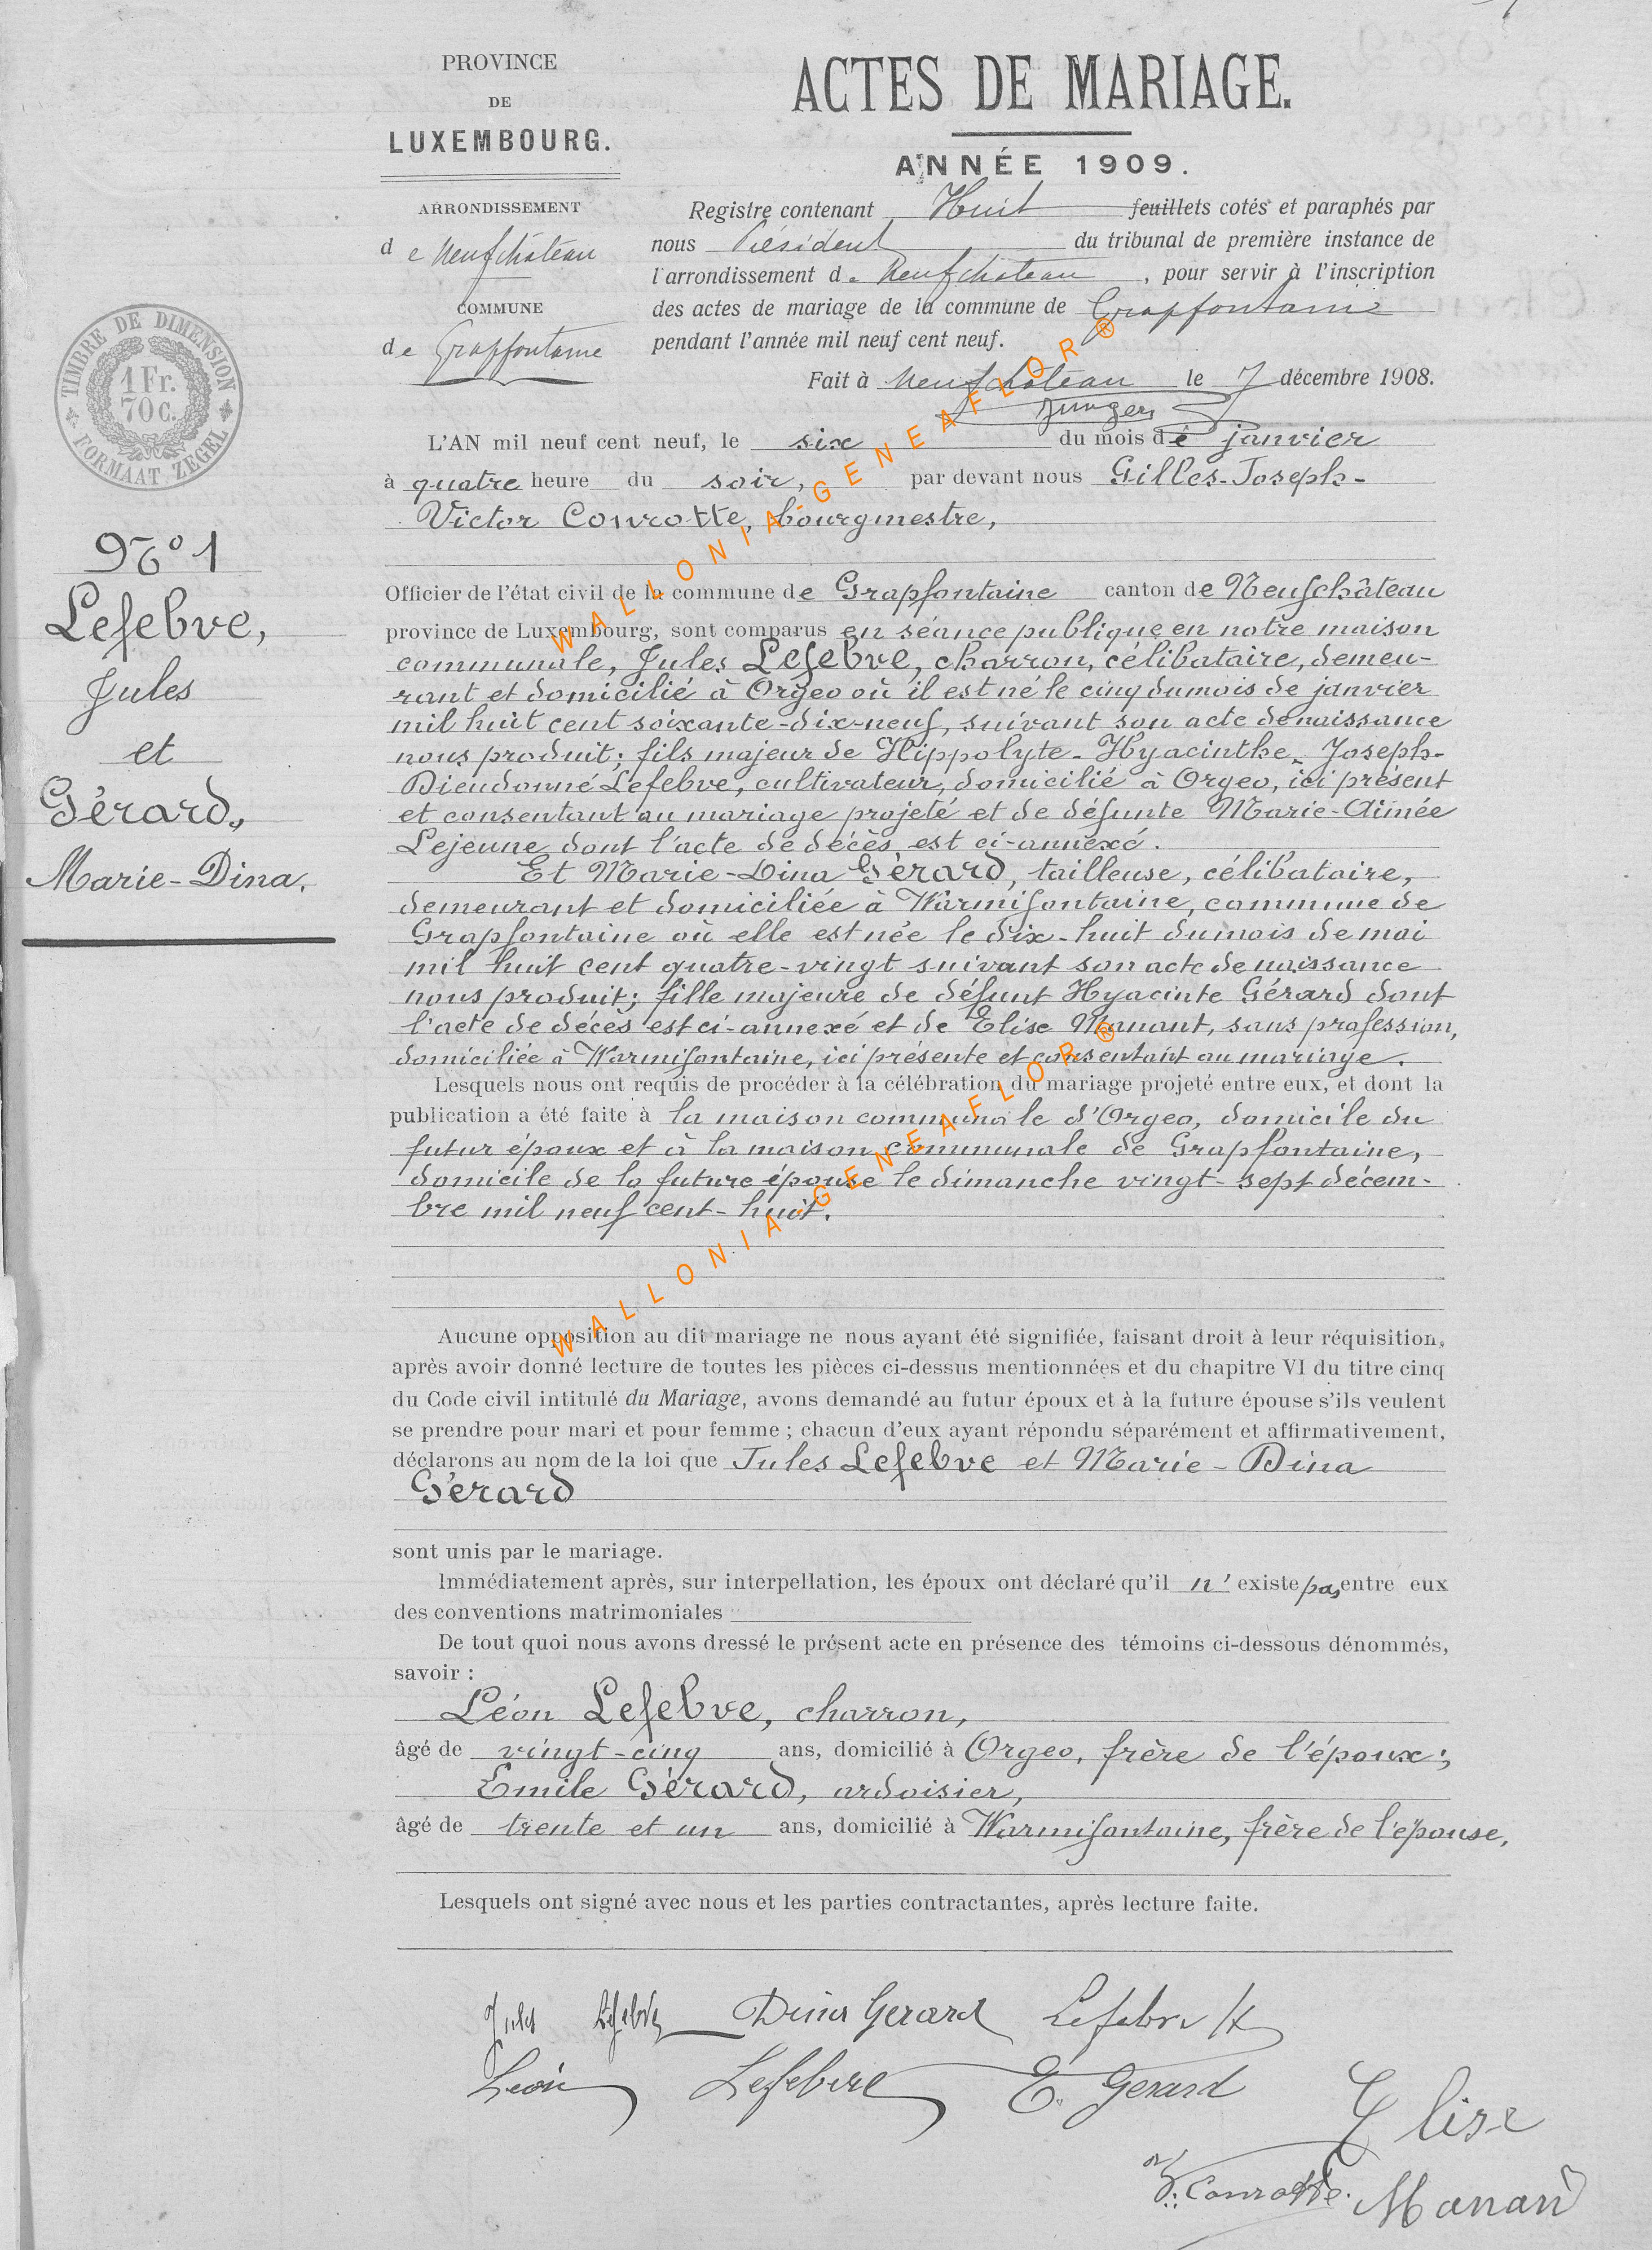 PROVINCE
DE
LUXEMBOURG.
ARRONDISSEMENT
de Neufchâteau
COMMUNE
de Grapfontaine
TIMBRE DE DIMENSION
1 Fr.
70 C.
FORMAAT ZEGEL
ACTES DE MARIAGE.
ANNÉE 1909.
Registre contenant Huit feuillets cotés et paraphés par
nous Président du tribunal de première instance de
l'arrondissement de Neufchateau, pour servir à l'inscription
des actes de mariage de la commune de Grapfontaine
pendant l'année mil neuf cent neuf.
Fait à Neufchateau le 7 décembre 1908.
N° 1
Lefebvre,
Jules
et
Gérard,
Marie-Dina.
L'AN mil neuf cent neuf, le six du mois de janvier
à quatre heure du soir, par devant nous Gilles-Joseph-
Victor Conrotte, bourgmestre,
Officier de l'état civil de la commune de Grapfontaine canton de Neufchâteau
province de Luxembourg, sont comparus en séance publique en notre maison
communale, Jules Lefebvre, charron, célibataire, demeu-
rant et domicilié à Orgeo où il est né le cinq du mois de janvier
mil huit cent soixante-dix-neuf, suivant son acte de naissance
nous produit; fils majeur de Hippolyte-Hyacinthe-Joseph-
Dieudonné Lefebvre, cultivateur, domicilié à Orgeo, ici présent
et consentant au mariage projeté et de défunte Marie-Aimée
Lejeune dont l'acte de décès est ci-annexé.
Et Marie-Dina Gérard, tailleuse, célibataire,
demeurant et domiciliée à Warmifontaine, commune de
Grapfontaine où elle est née le dix-huit du mois de mai
mil huit cent quatre-vingt suivant son acte de naissance
nous produit; fille majeure de défunt Hyacinte Gérard dont
l'acte de décès est ci-annexé et de Elise Manant, sans profession,
domiciliée à Warmifontaine, ici présente et consentant au mariage.
Lesquels nous ont requis de procéder à la célébration du mariage projeté entre eux, et dont la
publication a été faite à la maison communale d'Orgeo, domicile du
futur époux et à la maison communale de Grapfontaine,
domicile de la future épouse le dimanche vingt-sept décem-
bre mil neuf cent-huit.
Aucune opposition au dit mariage ne nous ayant été signifiée, faisant droit à leur réquisition,
après avoir donné lecture de toutes les pièces ci-dessus mentionnées et du chapitre VI du titre cinq
du Code civil intitulé du Mariage, avons demandé au futur époux et à la future épouse s'ils veulent
se prendre pour mari et pour femme ; chacun d'eux ayant répondu séparément et affirmativement,
déclarons au nom de la loi que Jules Lefebvre et Marie-Dina
Gérard
sont unis par le mariage.
Immédiatement après, sur interpellation, les époux ont déclaré qu'il n'existe pas entre eux
des conventions matrimoniales
De tout quoi nous avons dressé le présent acte en présence des témoins ci-dessous dénommés,
savoir :
Léon Lefebvre, charron,
âgé de vingt-cinq ans, domicilié à Orgeo, frère de l'époux;
Emile Gérard, ardoisier,
âgé de trente et un ans, domicilié à Warmifontaine, frère de l'épouse,
Lesquels ont signé avec nous et les parties contractantes, après lecture faite.
Jules Lefebvre Dina Gerard Lefebvre H
Léon Lefebvre E. Gerard
Elise
Conrotte. Manant
WALLONIA-GENEAFLOR ®
WALLONIA-GENEAFLOR ®